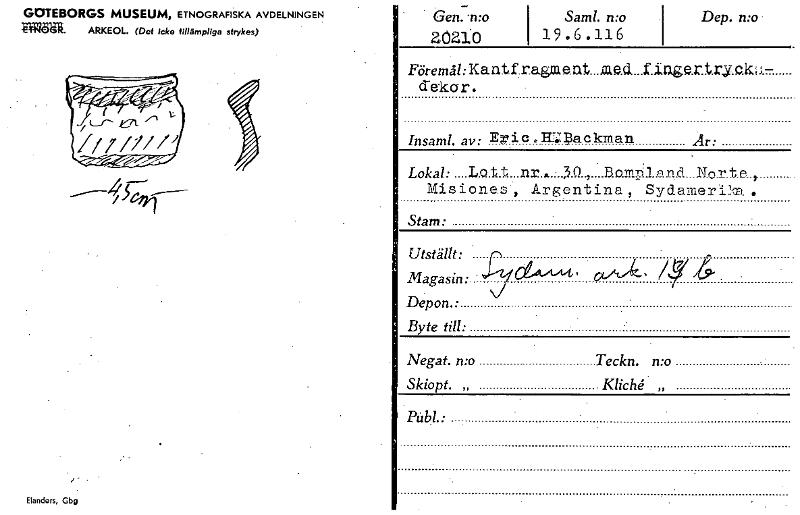 GÖTEBORGS MUSEUM, ETNOGRAFISKA AVDELNINGEN
ETNOGR. ARKEOL. (Det icke tillämpliga strykes)
4,5cm
Elanders, Gbg
Gen. n:o Saml. n:o Dep. n:o
20210 19.6.116
Föremål: Kantfragment med fingertrycks-
dekor.
Insaml. av: Eric.H.Backman År:
Lokal: Lott nr. 30, Bompland Norte,
Misiones, Argentina, Sydamerika.
Stam:
Utställt:
Magasin: Sydam. ark. b
Depon.:
Byte till:
Negat. n:o Teckn. n:o
Skiopt. „ Kliché „
Publ.: